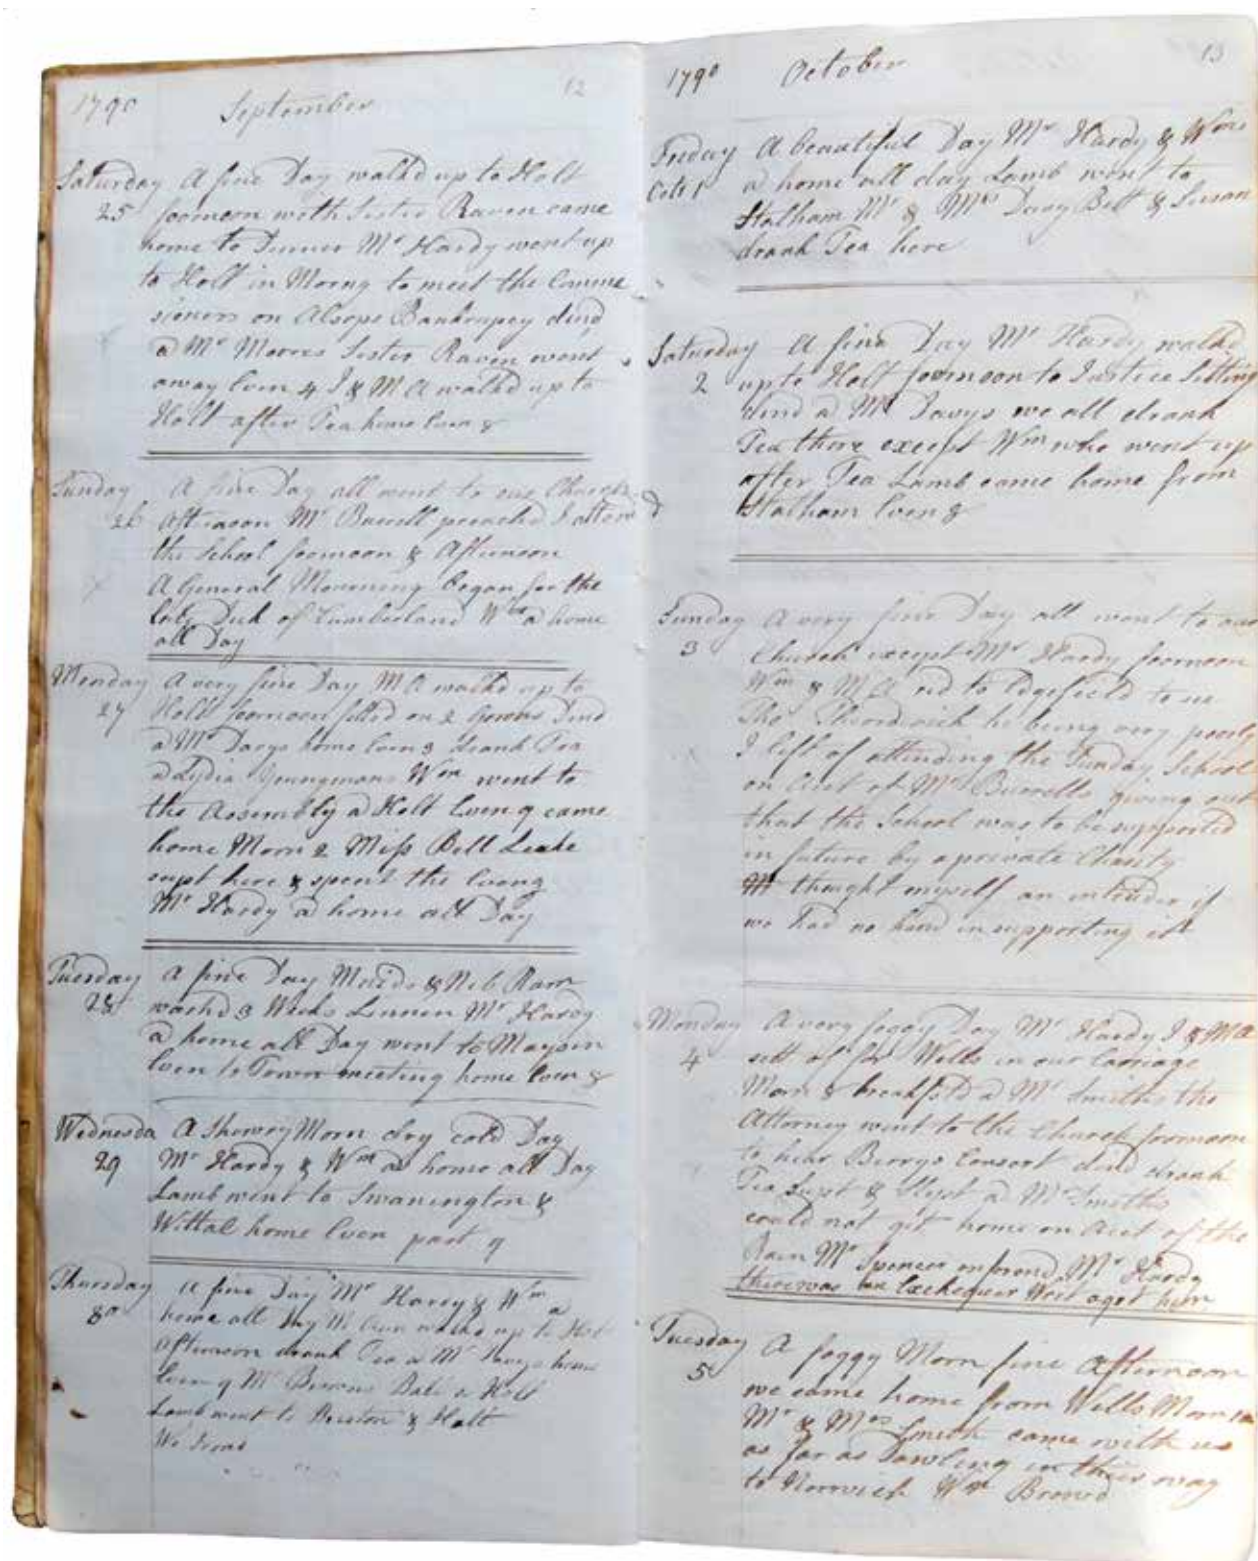 1790 September 12
Saturday A fine Day walkd up to Holt
25 foornoon with Sister Raven came
home to Dinner Mr Hardy went up
to Holt in Morng to meet the Comme
sioners on Alsops Bankrupcy dind
a Mr Moores Sister Raven went
away Even 4 I & MA walkd up to
Holt after Tea home Even 8
Sunday A fine Day all went to our Church
26 Afternoon Mr Burrell preachd I attend
the School foornoon & Afternoon
A General Mourning began for the
late Duk of Cumberland Wm a home
all Day
Monday A very fine Day MA walkd up to
27 Holt foornoon fitted on 2 Gowns Dind
a Mr Davys home Even 3 Drank Tea
a Lydia Youngmans Wm went to
the Assembly a Holt Even 9 came
home Morn 2 Miss Bett Leake
supt here & spent the Eveng
Mr Hardy a home all Day
Tuesday A fine Day Maids & Neb Ram
28 washd 3 Weeks Linnen Mr Hardy
a home all Day went to Maysen
Even to Town meeting home Even 8
Wednesda A Showry Morn dry cold Day
29 Mr Hardy & Wm a home all Day
Lamb went to Swanington &
Wittal home Even past 9
Thursday A fine Day Mr Hardy & Wm a
30 home all Day M Ann walkd up to Holt
Afternoon drank Tea a Mr Davys home
Even 9 Mr Browns Ball a Holt
Lamb went to Burston & Holt
We Brewd
1790 October 13
Freday A beautiful Day Mr Hardy & Wm
Octr 1 a home all day Lamb went to
Stalham Mr & Mrs Davy Bett & Susan
drank Tea here
Saturday A fine Day Mr Hardy walkd
2 up to Holt foornoon to Justice Sitting
dind a Mr Davys we all drank
Tea there except Wm who went up
after Tea Lamb came home from
Stalham Even 8
Sunday A very fine Day all went to our
3 Church except Mr Hardy foornoon
Wm & MA rid to Edgefield to se
Thos he being very poorly
I left of attending the Sunday School
on Acct of Mr Burrells giving out
that the School was to be supported
in future by a private Charity
thought myself an intruder if
we had no hand in supporting it
Monday A very foggy Day Mr Hardy I & MA
4 sett of for Wells in our Carriage
Morn 8 breakfstd a Mr Smiths the
Attorney went to the Church foornoon
to hear Berrys Consort dind drank
Tea Supt & Slept a Mr Smiths
could not git home on Acct of the
Rain Mr Spencer informd Mr Hardy
there was an Exchequer Writ agst him
Tuesday A foggy Morn fine Afternoon
5 we came home from Wells Morn
Mr & Mrs Smith came with us
as far as Sawling in their way
to Norwich Wm Brewd